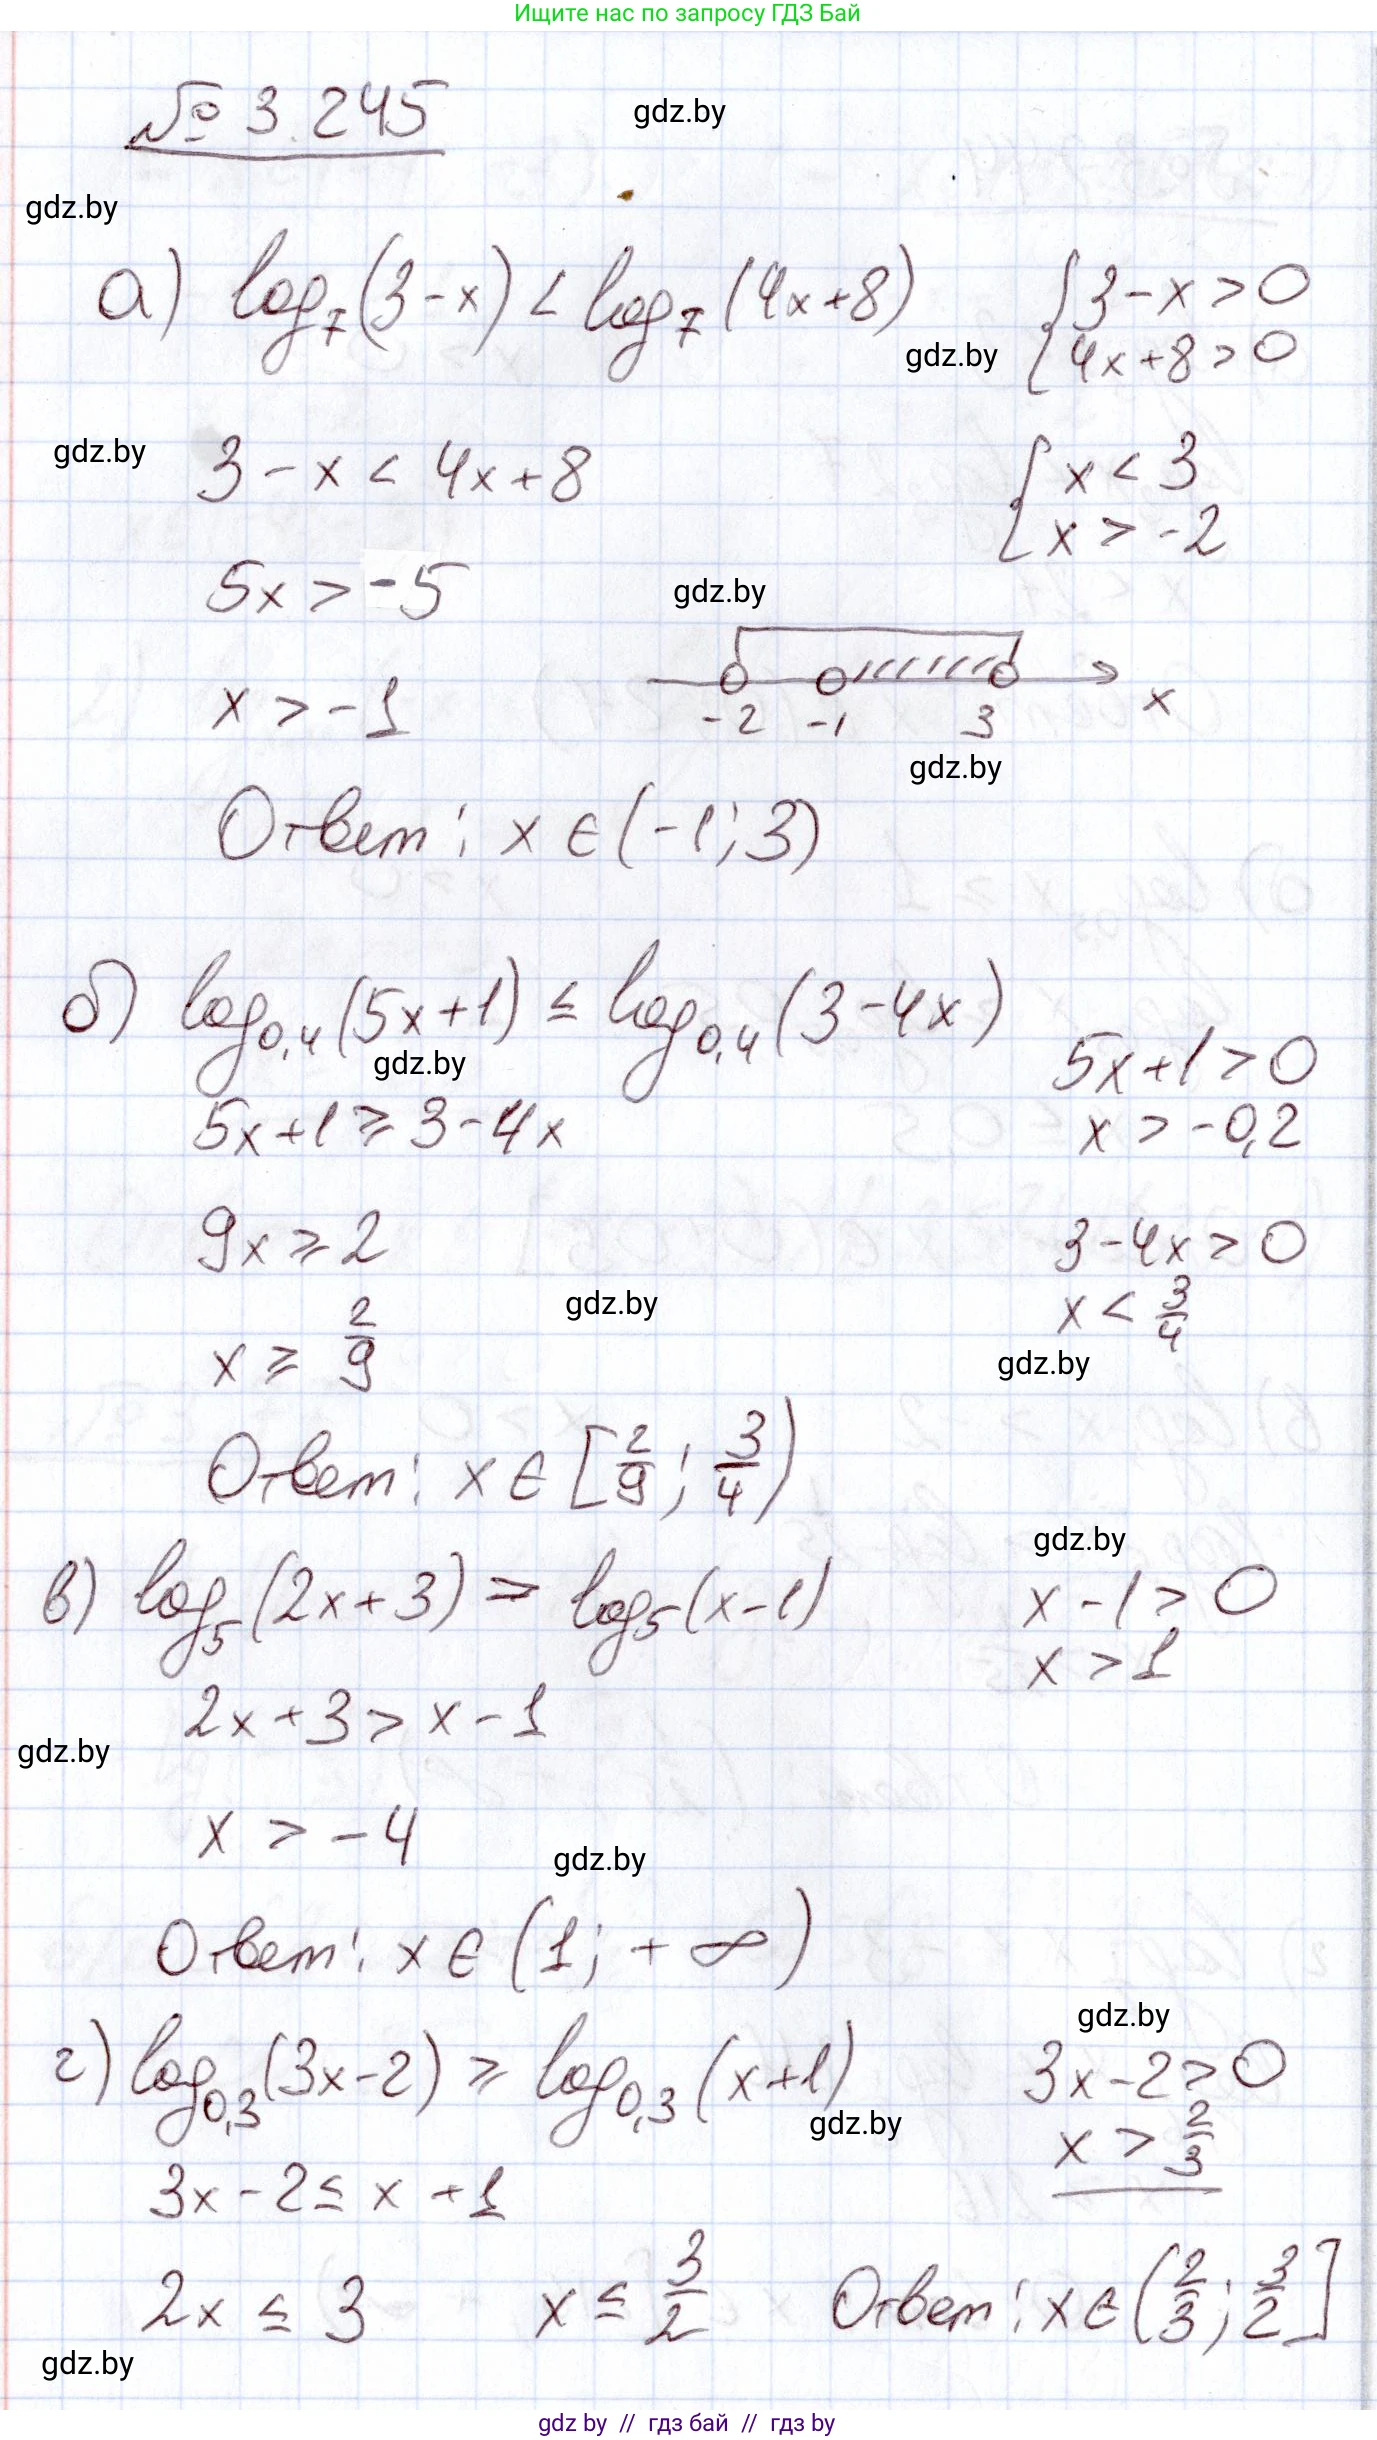 Ищите нас по запросу ГДЗ Бай
№ 3.245
gdz.by
gdz.by
а) log₇(3-x) < log₇(4x+8)
{ 3-x > 0
4x+8 > 0
gdz.by
gdz.by
3-x < 4x+8
{ x < 3
x > -2
5x > -5
gdz.by
x > -1
-2 -1 3 x
gdz.by
Ответ: x ∈ (-1; 3)
б) log₀,₄(5x+1) ≤ log₀,₄(3-4x)
5x+1 > 0
gdz.by
5x+1 ≥ 3-4x
x > -0,2
9x ≥ 2
3-4x > 0
gdz.by
x < 3/4
x ≥ 2/9
gdz.by
Ответ: x ∈ [2/9; 3/4)
gdz.by
в) log₅(2x+3) > log₅(x-1)
x-1 > 0
x > 1
2x+3 > x-1
gdz.by
x > -4
gdz.by
Ответ: x ∈ (1; +∞)
gdz.by
г) log₀,₃(3x-2) ≥ log₀,₃(x+1)
3x-2 > 0
gdz.by
x > 2/3
3x-2 ≤ x+1
2x ≤ 3 x ≤ 3/2 Ответ: x ∈ (2/3; 3/2]
gdz.by
gdz by // гдз бай // гдз by